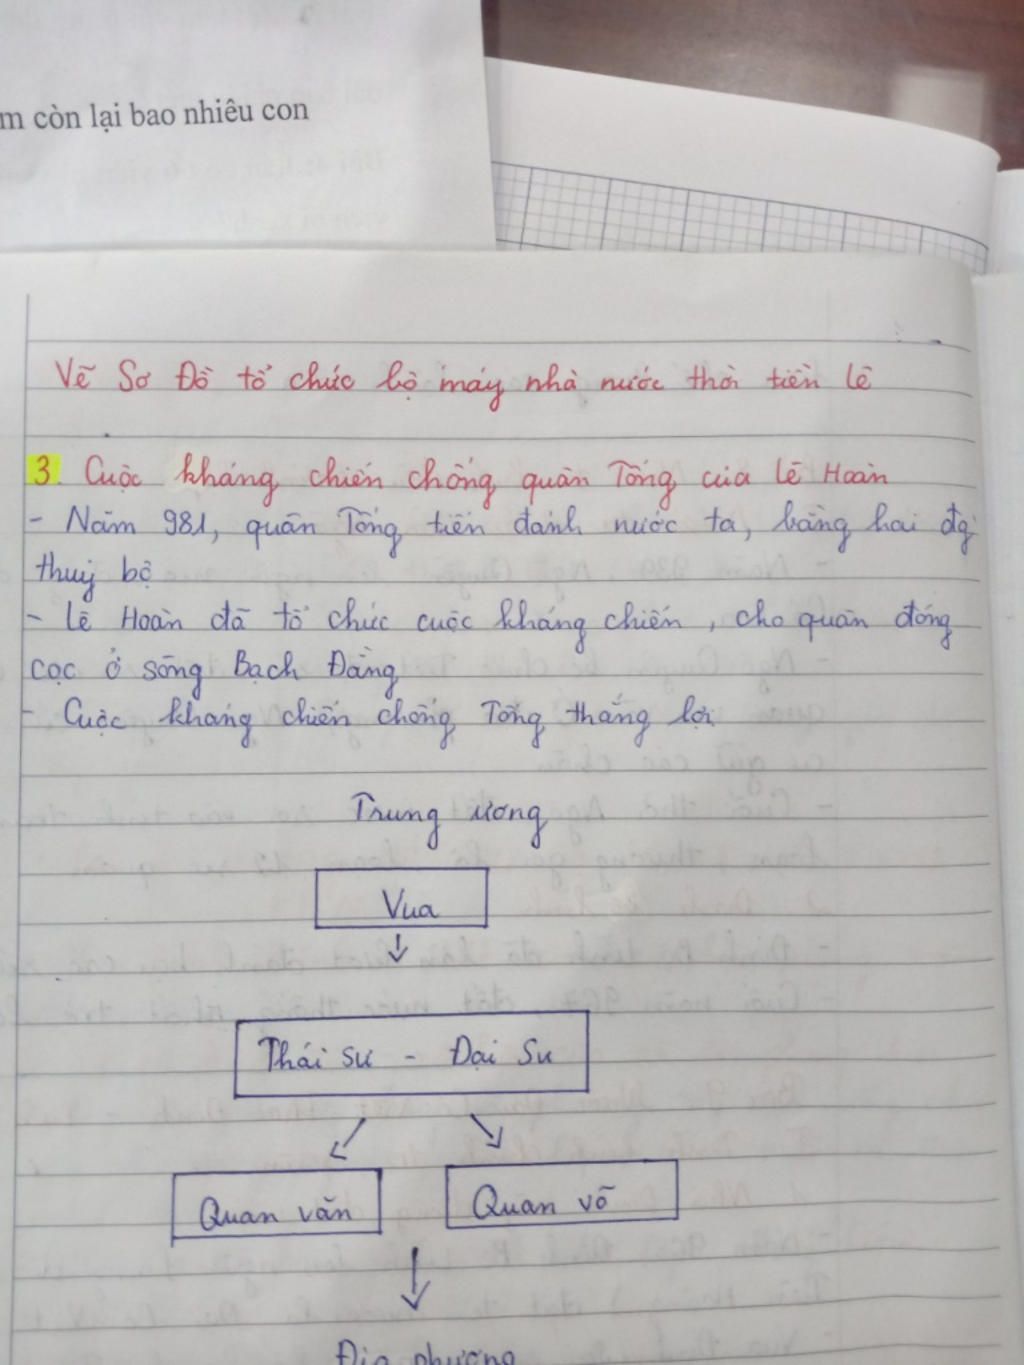 m còn lại bao nhiêu con
Vẽ Sơ Đồ tổ chức bộ máy nhà nước thời tiền lê
3. Cuộc kháng chiến chống quân Tống của lê Hoàn
- Năm 981, quân Tống tiến đánh nước ta, bằng hai đg
thuỷ bộ
- lê Hoàn đã tổ chức cuộc kháng chiến, cho quân đóng
cọc ở sông Bạch Đằng
- Cuộc kháng chiến chống Tống thắng lợi
Trung ương
Vua
Thái sư - Đại Sư
Quan văn Quan võ
Địa phương